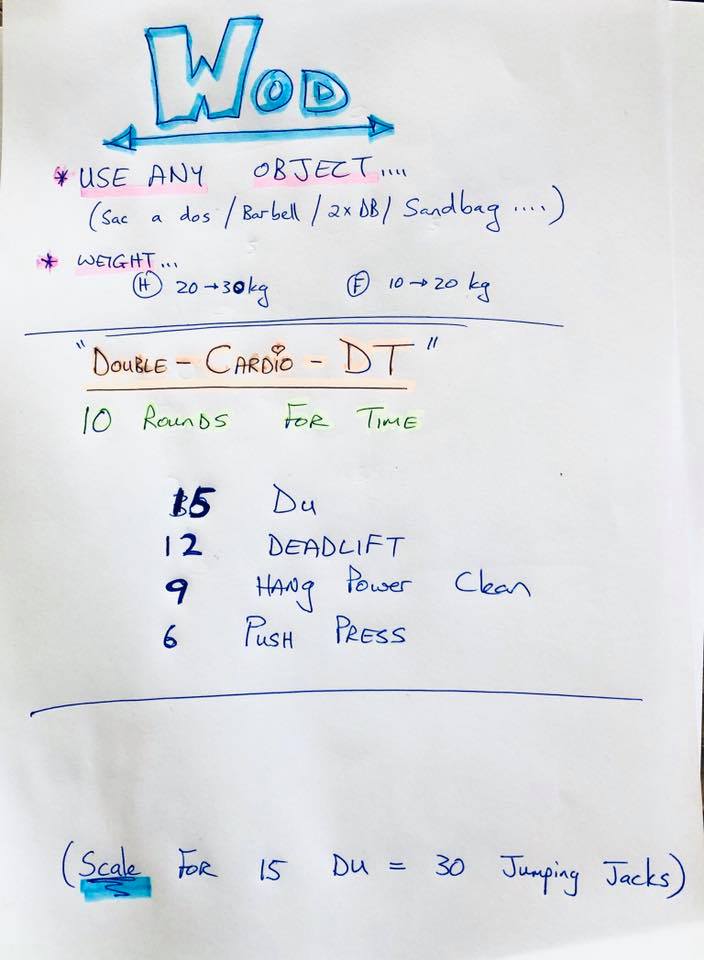 WOD
* USE ANY OBJECT....
(Sac a dos / Barbell / 2x DB / Sandbag ....)
* WEIGHT...
(H) 20→30kg (F) 10→20 kg
"DOUBLE - CARDIO - DT"
10 ROUNDS FOR TIME
15 Du
12 DEADLIFT
9 HANg Power Clean
6 PUSH PRESS
(Scale FOR 15 DU = 30 Jumping Jacks)